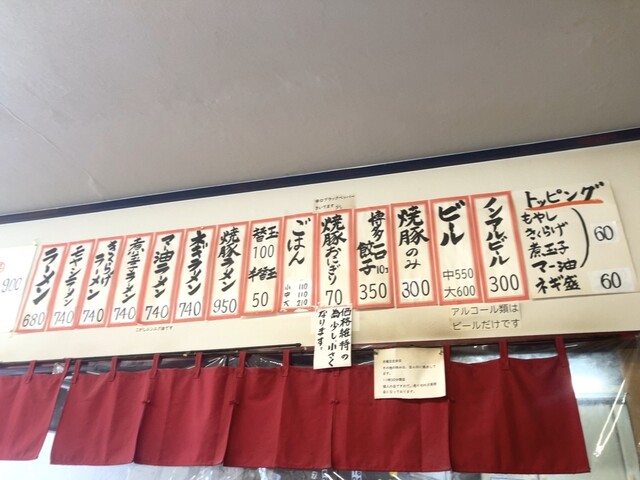 900
ラーメン
680
もやしラーメン
740
きくらげ
ラーメン
740
煮玉子ラーメン
740
マー油ラーメン
740
ネギラーメン
740
焼豚ラーメン
950
替玉
100
半替玉
50
ごはん
小 110
中
大 210
焼豚おにぎり
70
価格維持の
為少し小さく
なります。
博多一口
餃子10コ
350
焼豚のみ
300
ビール
中550
大600
ノンアルビール
300
アルコール類は
ビールだけです
トッピング
もやし
きくらげ
煮玉子
マー油
60
ネギ盛
60